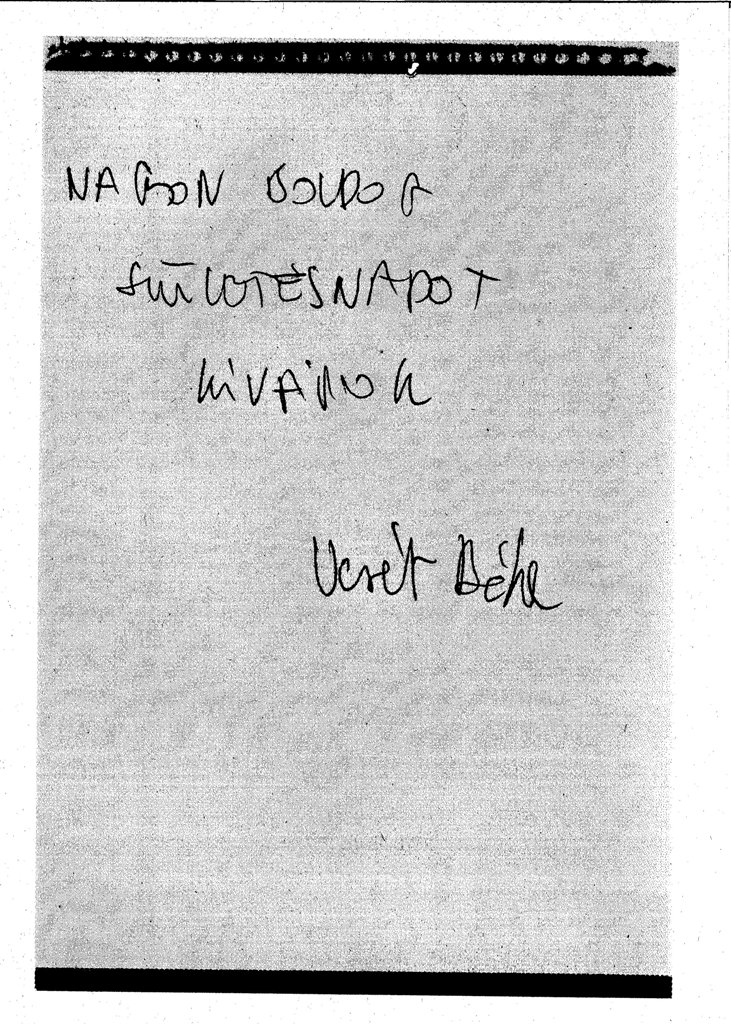 NAGYON BOLDOG
SZÜLETÉSNAPOT
KÍVÁNOK
Béla